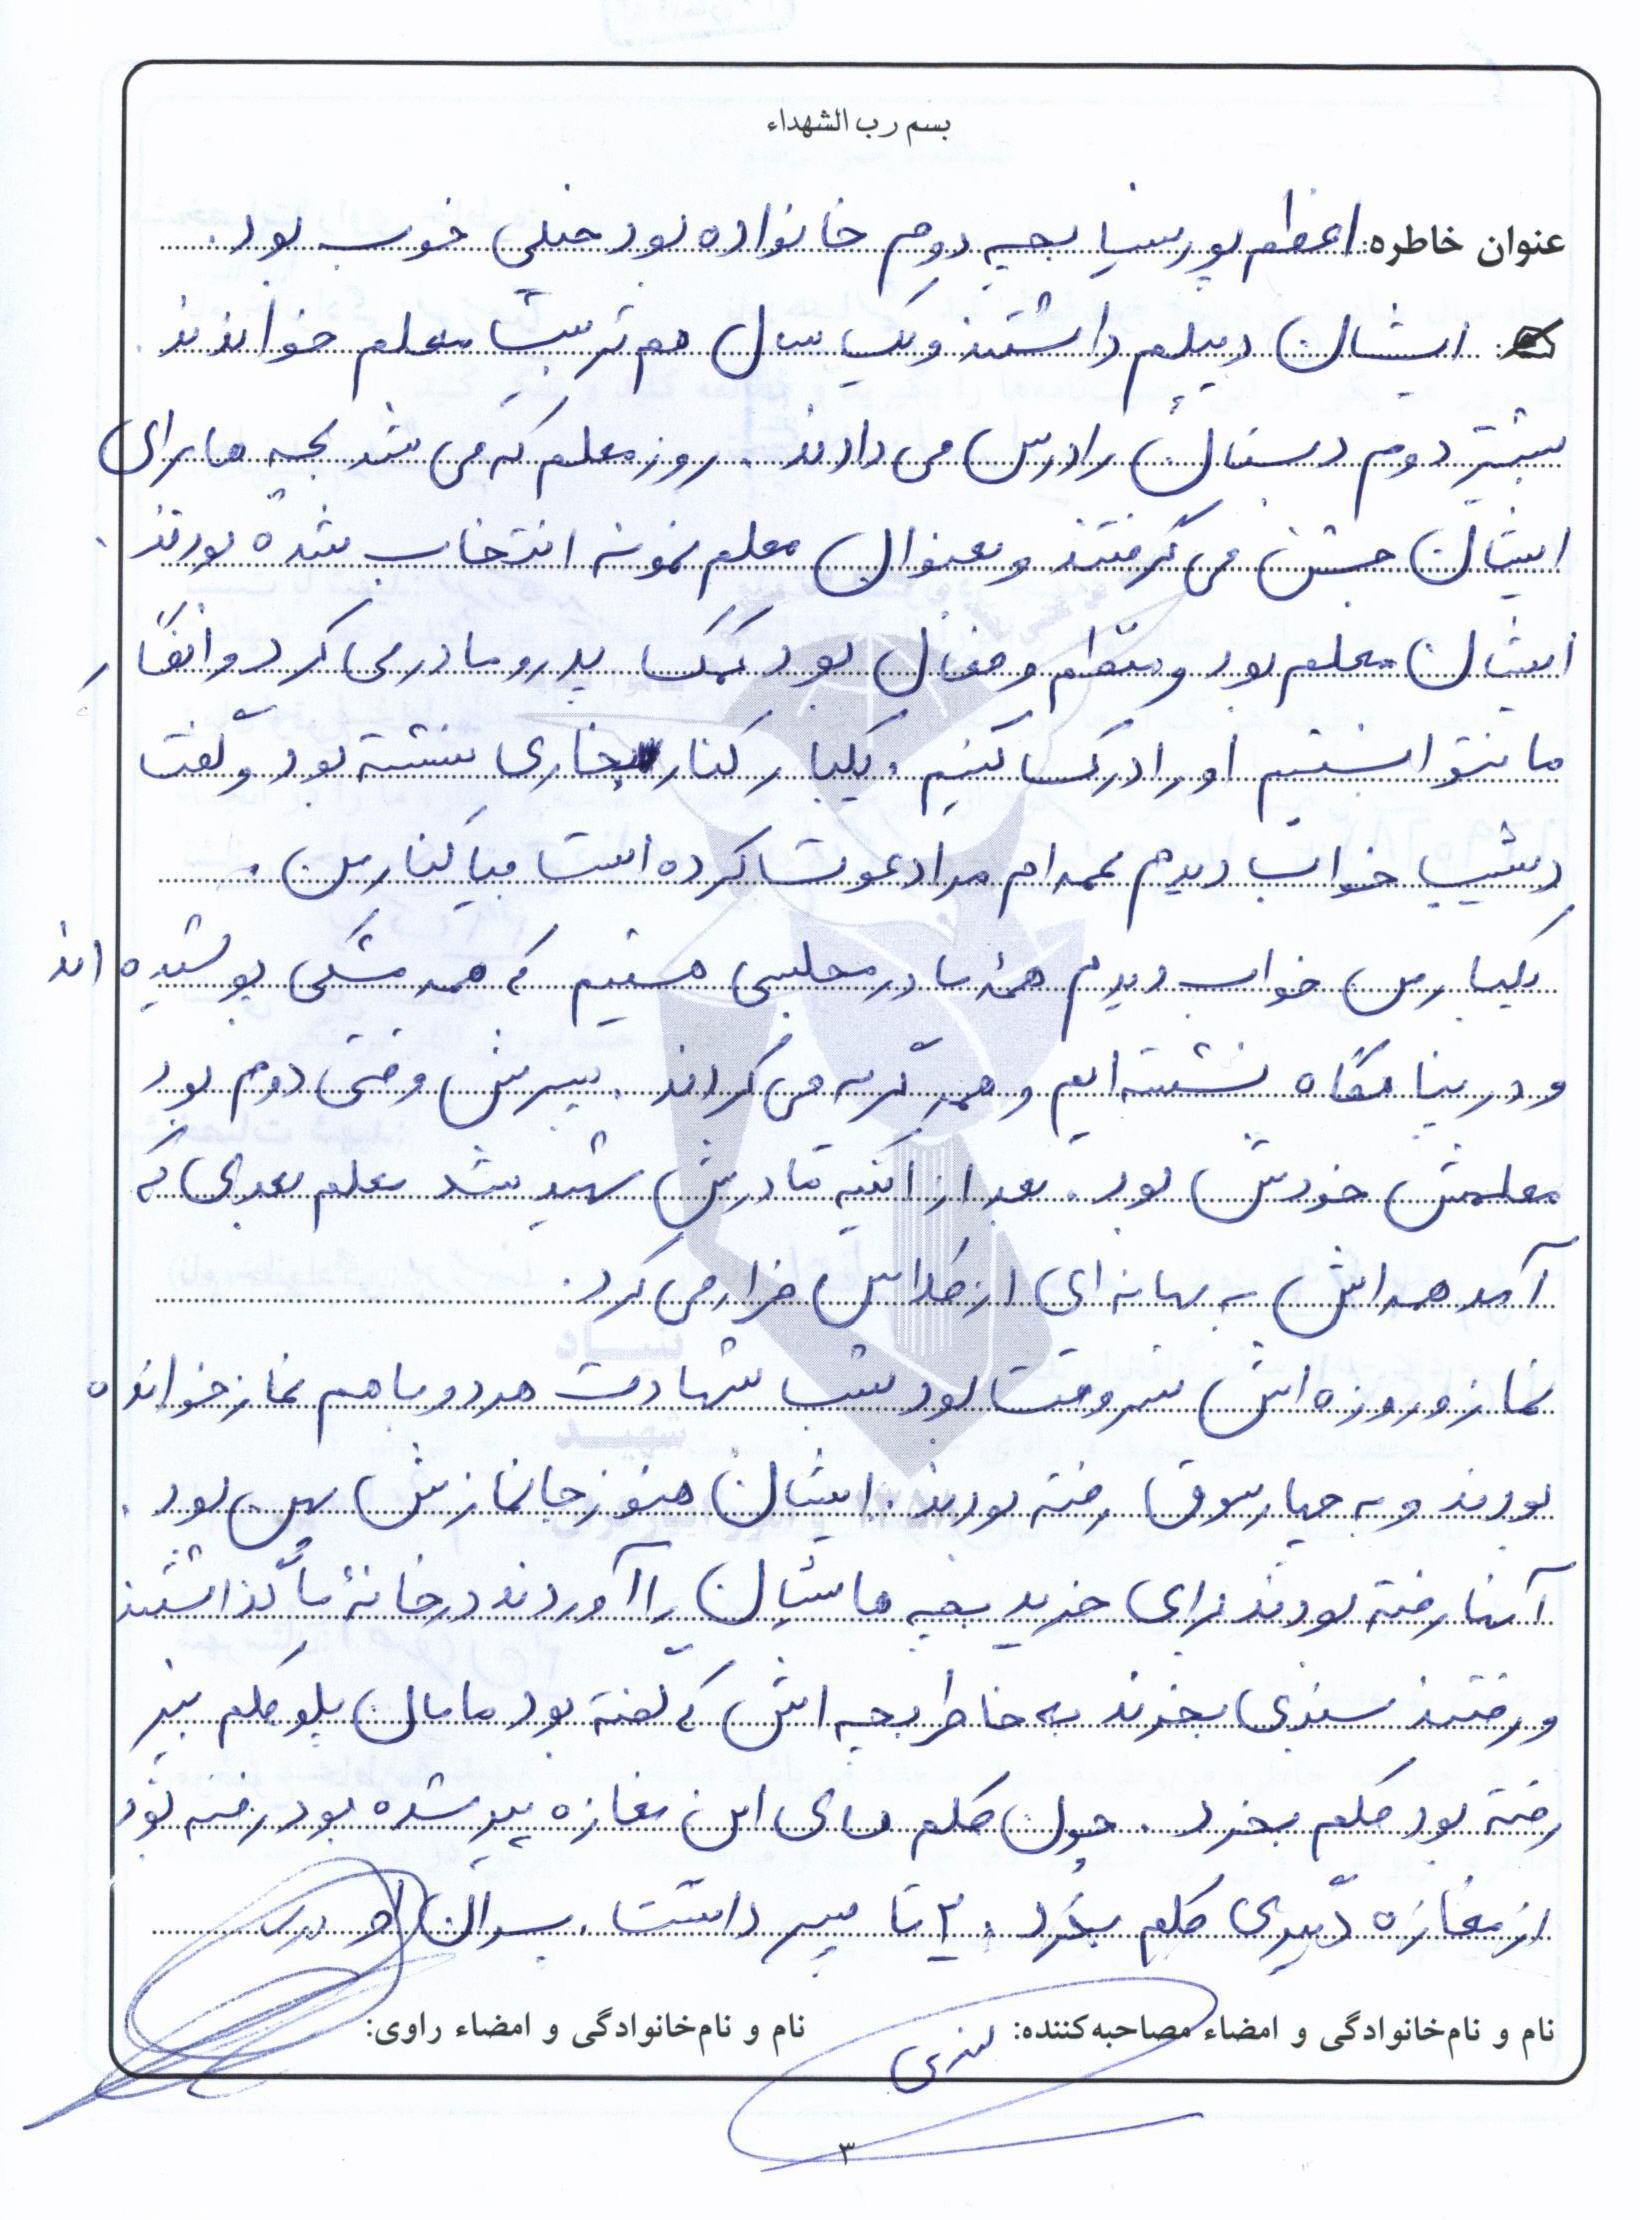 بسم رب الشهداء
عنوان خاطره: اعظم پورسینا بچه دوم خانواده بود خیلی خوب بود.
ایشان دیپلم داشتند و یک سال هم تربیت معلم خواندند
بیشتر دوم دبستان را درس می دادند. روز معلم که می شد بچه ها برای
ایشان جشن می گرفتند و بعنوان معلم نمونه انتخاب شده بودند.
ایشان معلم بود و منظم و فعال بود کمک پدر و مادر می کرد واقعاً
ما نتوانستیم او را درک کنیم. یکبار کنار بخاری نشسته بود و گفت
دیشب خواب دیدم عمه ام مرا دعوت کرده است بیا کنار من.
یکبار من خواب دیدم همۀ ما در مجلسی هستیم که همه مشکی پوشیده اند
و در پناهگاه نشسته ایم و همه گریه می کردند. پسرش وقتی دوم بود
معلمش خودش بود. بعد از اینکه مادرش شهید شد معلم بعدی که
آمد همه اش به بهانه ای از کلاس فرار می کرد.
نماز و روزه اش سر وقت بود شب شهادت هر دو با هم نماز خوانده
بودند و به چهارسوق رفته بودند. ایشان هنوز جانمازش پهن بود.
آنها رفته بودند برای خرید بچه هاشان را آوردند در خانۀ ما گذاشتند
و رفتند سبزی بخرند به خاطر بچه اش که گفته بود مامان پلو کلم بپز
رفته بود کلم بخرد. چون کلم های این مغازه پیر شده بود رفته بود
از مغازه دیگری کلم بخرد. ۲ تا پسر داشت.
نام و نام‌خانوادگی و امضاء مصاحبه‌کننده:
نام و نام‌خانوادگی و امضاء راوی:
۳